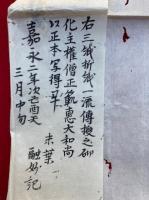 右三紙折紙一流傳授之砌
化主權僧正範惠大和尚
以正本写得畢
末葉
融妙記
嘉永二年次己酉天
三月中旬